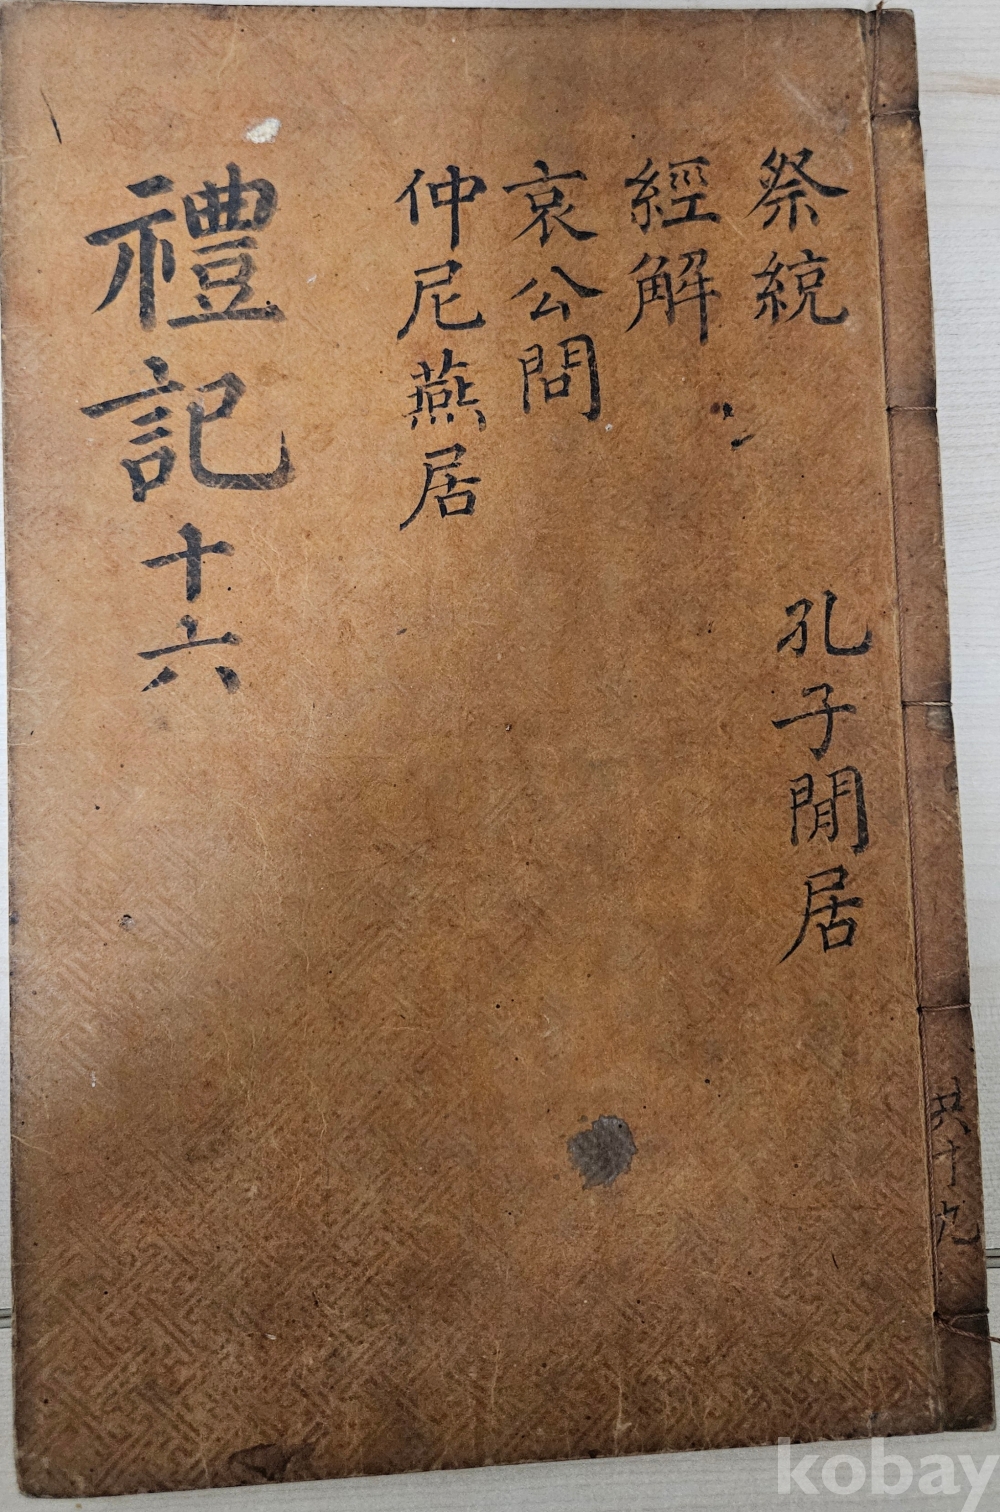 祭統
經解
哀公問
仲尼燕居
孔子閒居
禮記十六
共十九
kobay